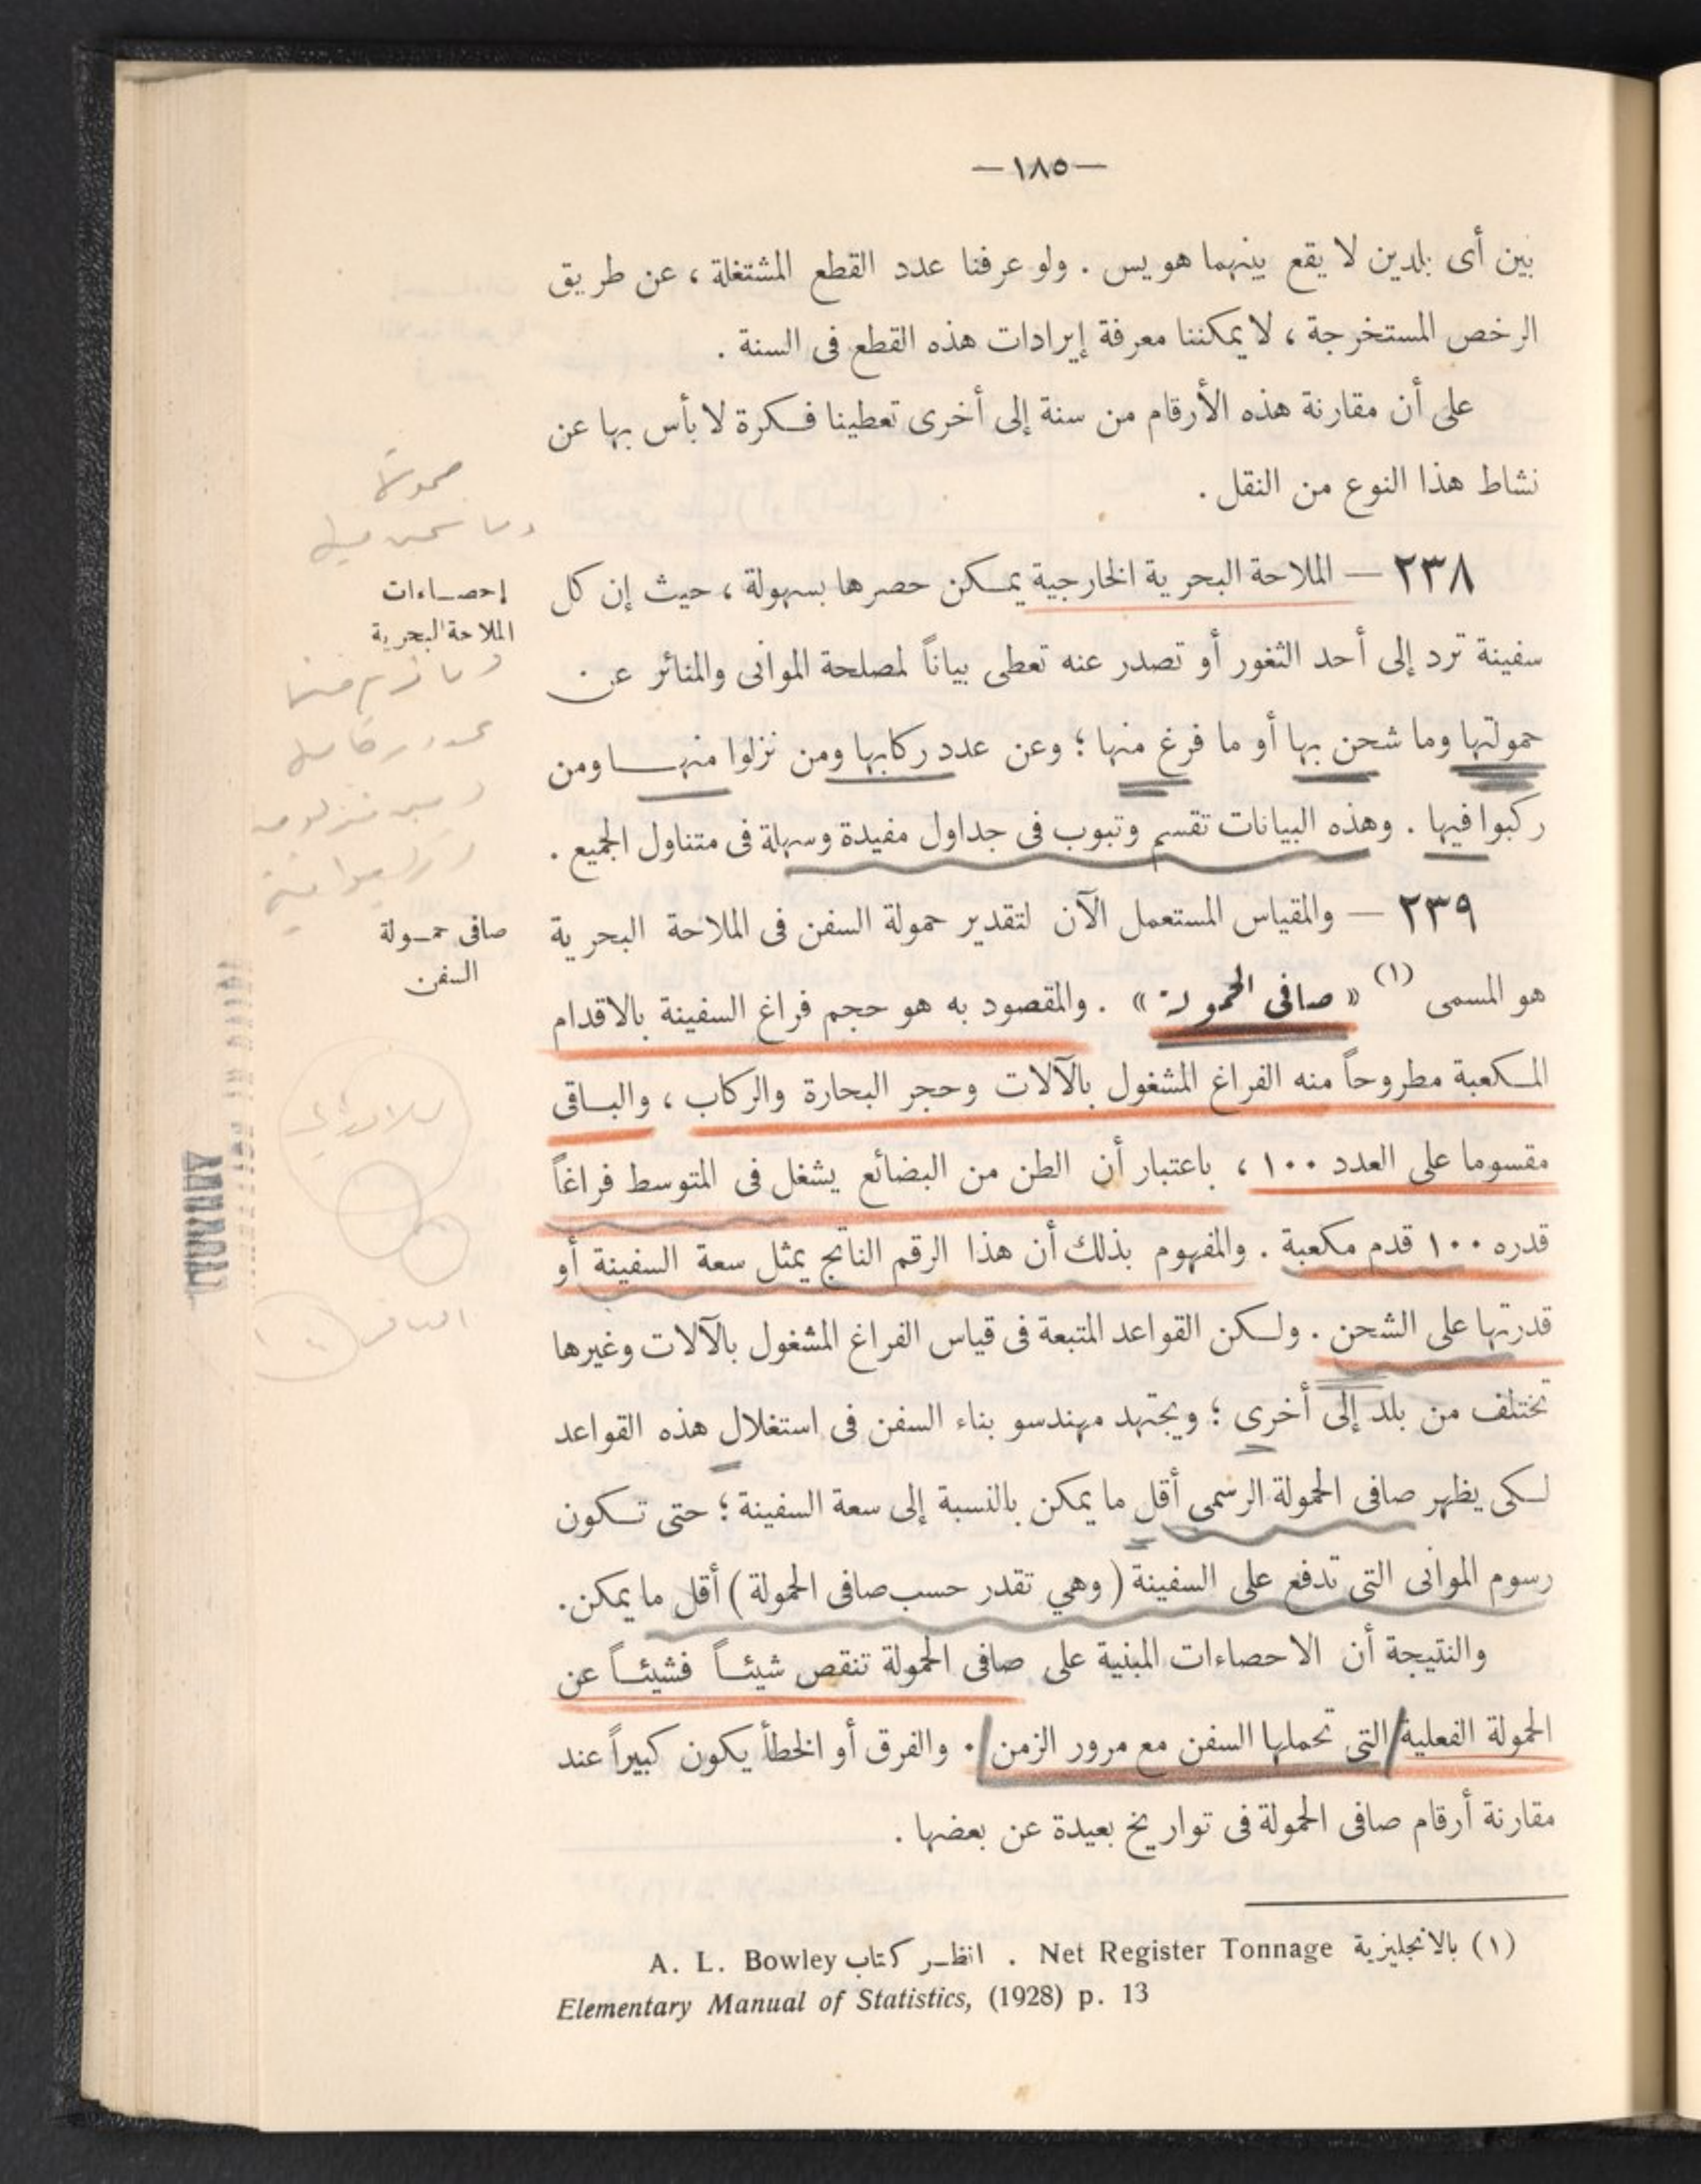 —١٨٥—
بين أى بلدين لا يقع بينهما هويس . ولو عرفنا عدد القطع المشتغلة ، عن طريق
الرخص المستخرجة ، لا يمكننا معرفة إيرادات هذه القطع فى السنة .
على أن مقارنة هذه الأرقام من سنة إلى أخرى تعطينا فكرة لا بأس بها عن
نشاط هذا النوع من النقل .
إحصاءات
الملاحة البحرية
٢٣٨ — الملاحة البحرية الخارجية يمكن حصرها بسهولة ، حيث إن كل
سفينة ترد إلى أحد الثغور أو تصدر عنه تعطى بياناً لمصلحة الموانى والمنائر عن
حمولتها وما شحن بها أو ما فرغ منها ؛ وعن عدد ركابها ومن نزلوا منها ومن
ركبوا فيها . وهذه البيانات تقسم وتبوب فى جداول مفيدة وسهلة فى متناول الجميع .
صافى حمولة
السفن
٢٣٩ — والمقياس المستعمل الآن لتقدير حمولة السفن فى الملاحة البحرية
هو المسمى (١) « صافى الحمولة » . والمقصود به هو حجم فراغ السفينة بالاقدام
المكعبة مطروحاً منه الفراغ المشغول بالآلات وحجر البحارة والركاب ، والباقى
مقسوما على العدد ١٠٠ ، باعتبار أن الطن من البضائع يشغل فى المتوسط فراغاً
قدره ١٠٠ قدم مكعبة . والمفهوم بذلك أن هذا الرقم الناتج يمثل سعة السفينة أو
قدرتها على الشحن . ولكن القواعد المتبعة فى قياس الفراغ المشغول بالآلات وغيرها
تختلف من بلد إلى أخرى ؛ ويجتهد مهندسو بناء السفن فى استغلال هذه القواعد
لكى يظهر صافى الحمولة الرسمى أقل ما يمكن بالنسبة إلى سعة السفينة ؛ حتى تكون
رسوم الموانى التى تدفع على السفينة ( وهي تقدر حسب صافى الحمولة ) أقل ما يمكن.
والنتيجة أن الاحصاءات المبنية على صافى الحمولة تنقص شيئاً فشيئاً عن
الحمولة الفعلية التى تحملها السفن مع مرور الزمن . والفرق أو الخطأ يكون كبيراً عند
مقارنة أرقام صافى الحمولة فى تواريخ بعيدة عن بعضها .
(١) بالانجليزية Net Register Tonnage . انظر كتاب A. L. Bowley
Elementary Manual of Statistics, (1928) p. 13